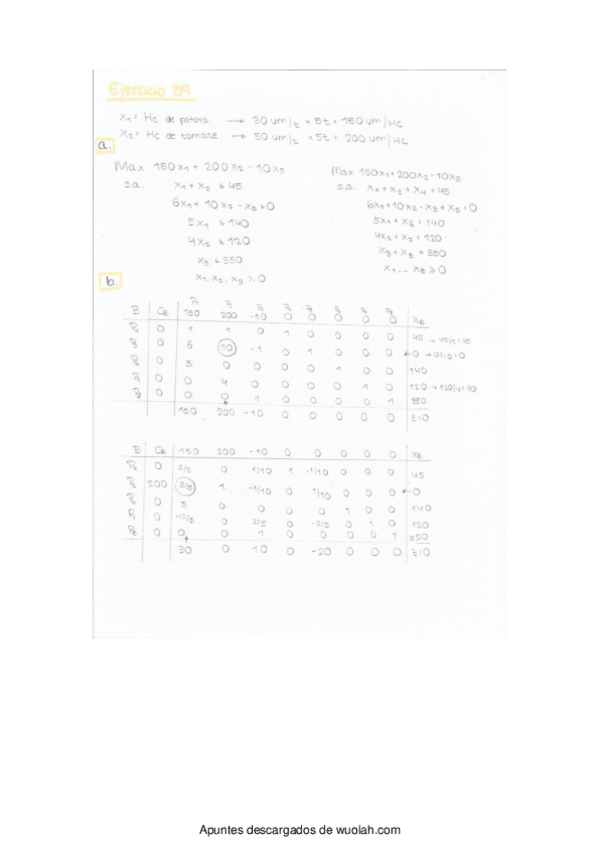 Ejercicio B9
x₁ = Hc de patata → 30 um/t × 5t = 150 um/Hc
x₂ = Hc de tomate → 50 um/t × 5t = 200 um/Hc
a.
Max 150x₁ + 200x₂ - 10x₃
s.a. x₁ + x₂ ≤ 45
6x₁ + 10x₂ - x₃ ≤ 0
5x₁ ≤ 140
4x₂ ≤ 120
x₃ ≤ 350
x₁, x₂, x₃ ≥ 0
Max 150x₁ + 200x₂ - 10x₃
s.a. x₁ + x₂ + x₄ = 45
6x₁ + 10x₂ - x₃ + x₅ = 0
5x₁ + x₆ = 140
4x₂ + x₇ = 120
x₃ + x₈ = 350
x₁ ... x₈ ≥ 0
b.
B CB 150 200 -10 0 0 0 0 0 XB
0 1 1 0 1 0 0 0 0 45 → 45/1 = 45
0 6 10 -1 0 1 0 0 0 0 → 0/10 = 0
0 5 0 0 0 0 1 0 0 140
0 0 4 0 0 0 0 1 0 120 → 120/4 = 30
0 0 0 1 0 0 0 0 1 350
150 200 -10 0 0 0 0 0 z=0
B CB 150 200 -10 0 0 0 0 0 XB
0 2/5 0 1/10 1 -1/10 0 0 0 45
200 3/5 1 -1/10 0 1/10 0 0 0 0
0 5 0 0 0 0 1 0 0 140
0 -12/5 0 2/5 0 -2/5 0 1 0 120
0 0 0 1 0 0 0 0 1 350
30 0 10 0 -20 0 0 0 z=0
Apuntes descargados de wuolah.com